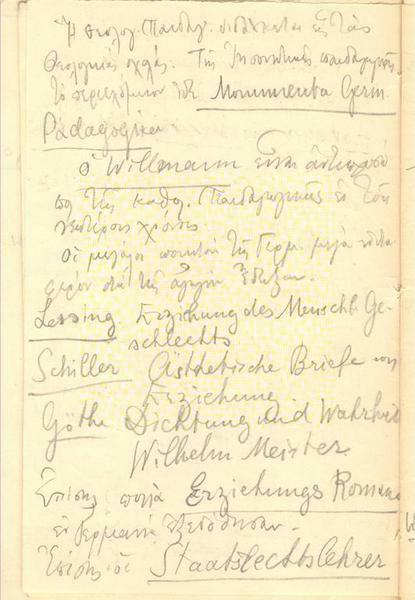 Ἡ θεολογ. Παιδαγ. διδάσκεται εἰς τὰς
θεολογικὰς σχολάς. Τῆς Ἰησουιτικῆς παιδαγωγικῆς
τὸ περιεχόμενον ἰδὲ Monumenta Germ.
Pädagogika
ὁ Willmann εἶναι ἀντιπρόσω
πος τῆς καθολ. Παιδαγωγικῆς ἐν τοῖς
νεωτέροις χρόνοις.
Οἱ μεγάλοι ποιηταὶ τῆς Γερμ. μεγά
διὰ τὴν ἀγωγὴν ἔδειξαν.
Lessing Erziehung des Menschl. Ge-
schlechts
Schiller Ästhetische Briefe von
Erziehung
Göthe Dichtung und Wahrheit
Wilhelm Meister
Ἐπίσης πολλὰ Erziehungs Romane
ἐν Γερμανίᾳ
Ἐπίσης οἱ